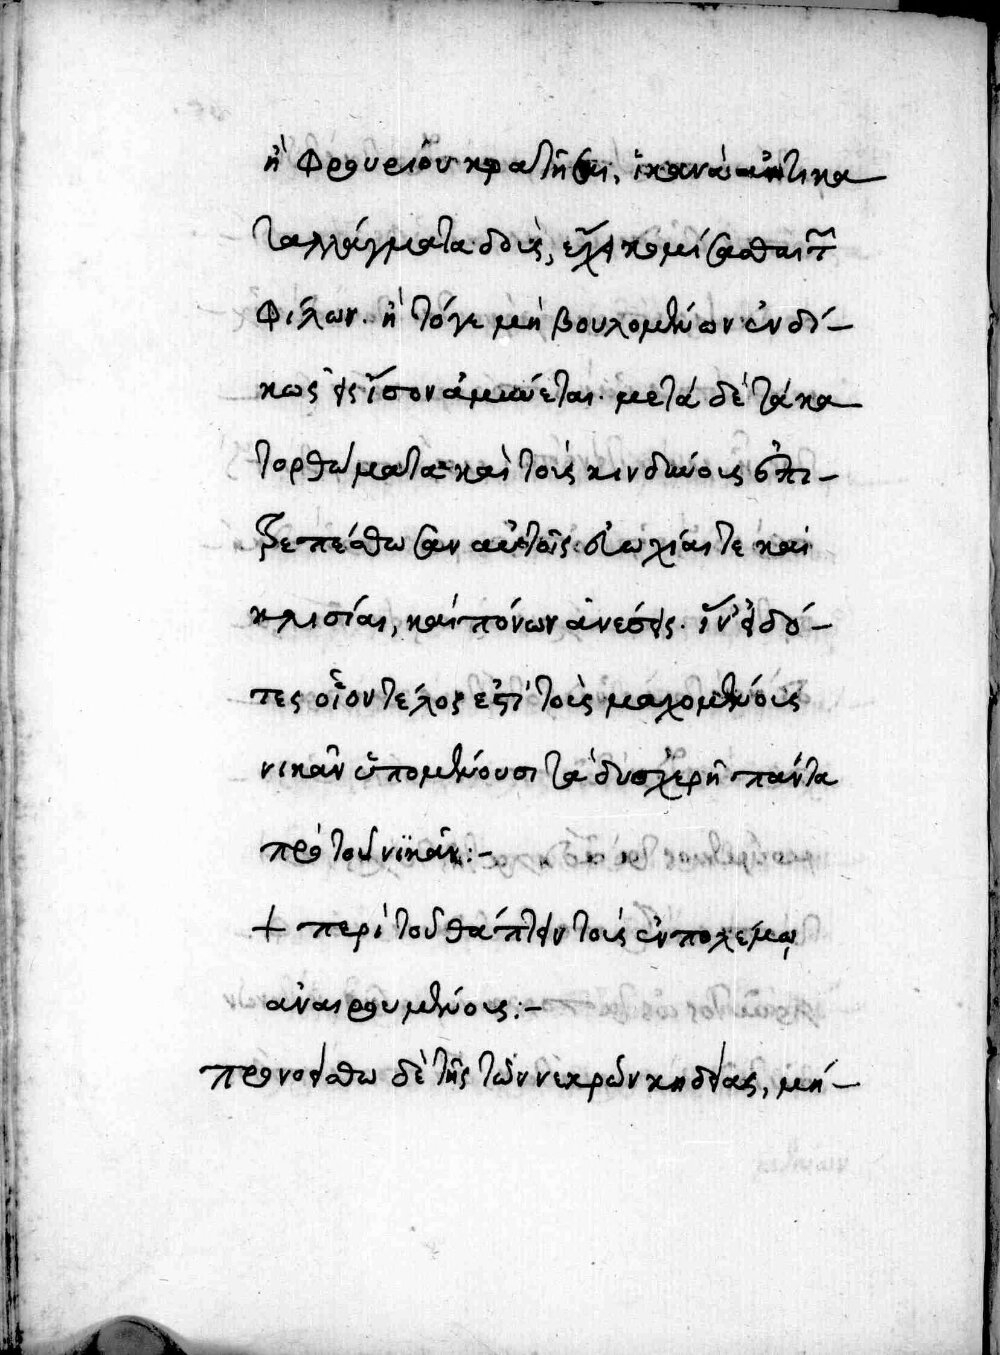 ἢ φρουρίου κρατῆσαι, ἱκανὰ ἀντικα
ταλλάγματα δοὺς, ἔχει κομίσασθαι τ
φίλων. ἢ τόγε μὴ βουλομένων ἐνδί-
κως εἰς ἴσον ἀμυνεται. μετὰ δὲ τὰ κα
τορθώματα καὶ τοὺς κινδύνους ἐπι-
τρεπέσθωσαν αὐτοῖς εὐωχίαι τε καὶ
κλισίαι, καὶ πόνων ἀνέσεις. ἵν' εἰδό-
τες οἷον τέλος ἐπὶ τοὺς μαχομένους
νικᾶν ὑπομένουσι τὰ δυσχερῆ πάντα
πρὸ τοῦ νικᾶν:-
+ περὶ τοῦ θάπτειν τοὺς ἐν πολέμῳ
ἀναιρουμένους:-
προνοείσθω δὲ τῆς τῶν νεκρῶν κηδείας, μή-